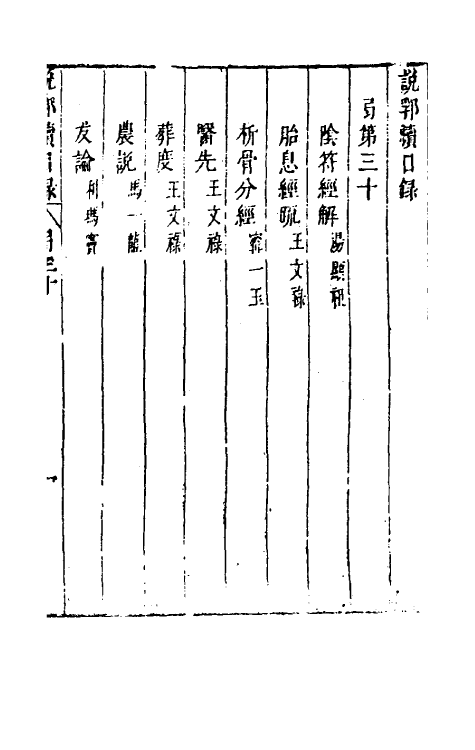 說郛續目錄
弓第三十
陰符經解 湯顯祖
胎息經疏 王文祿
析骨分經 甯一玉
醫先 王文祿
葬度 王文祿
農說 馬一龍
友論 利瑪竇
說郛續目錄 弓三十 一